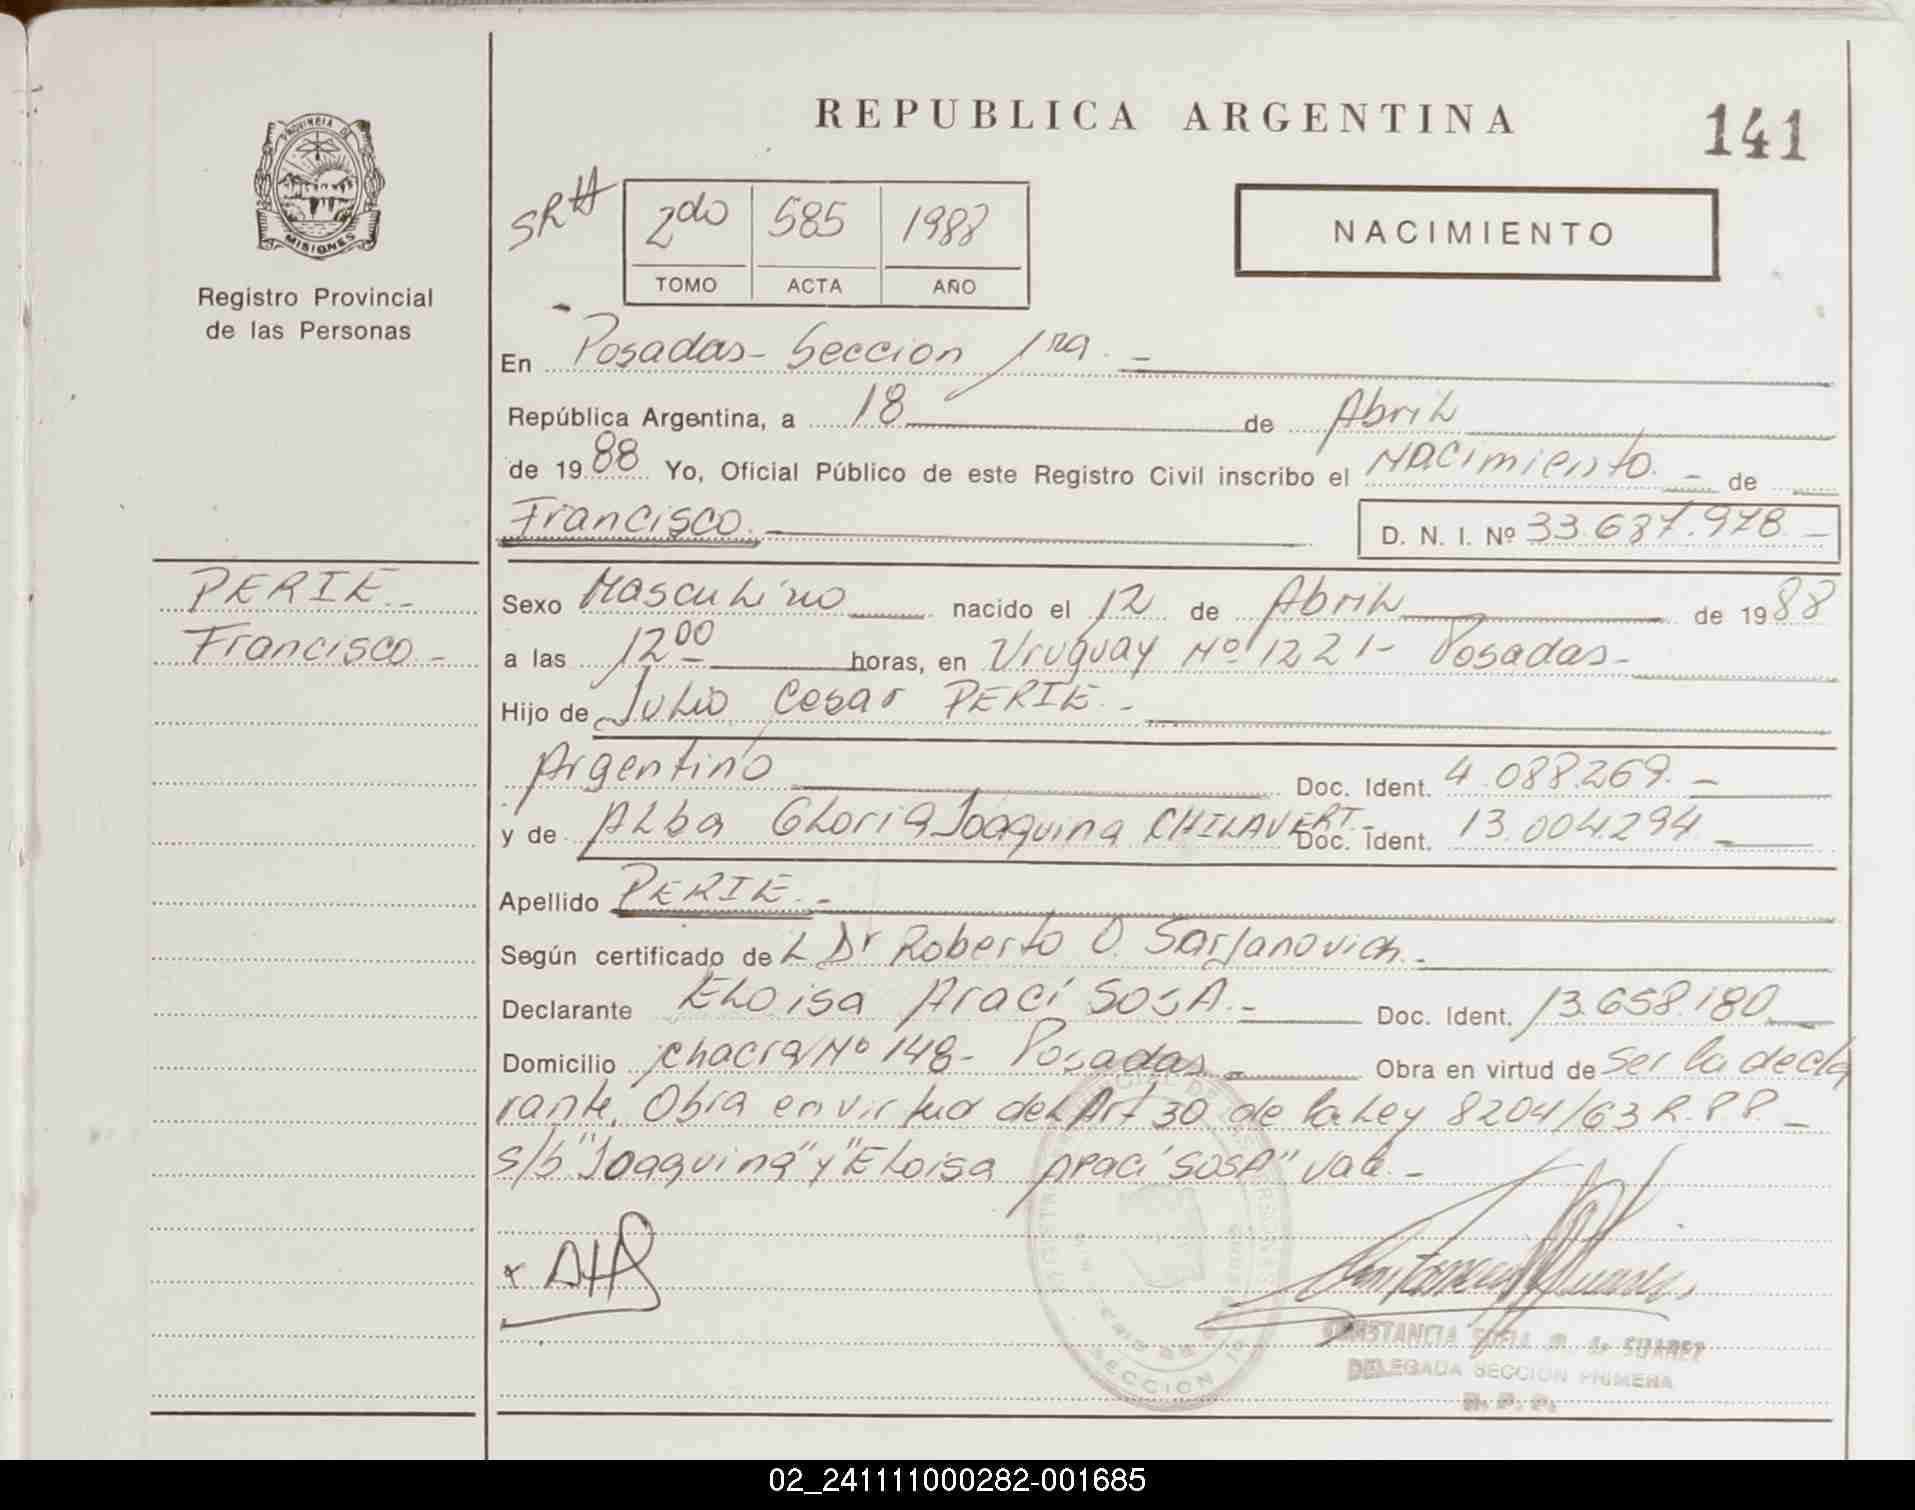 REPUBLICA ARGENTINA
141
PROVINCIA DE
MISIONES
Registro Provincial
de las Personas
SRH
2do 585 1988
TOMO ACTA AÑO
NACIMIENTO
En Posadas - Seccion 1ra. -
República Argentina, a 18 de Abril
de 1988 Yo, Oficial Público de este Registro Civil inscribo el Nacimiento. - de
Francisco. - D. N. I. Nº 33.637.978. -
PERIE. -
Francisco -
Sexo Masculino nacido el 12 de Abril de 1988
a las 12 00 horas, en Uruguay Nº 1221 - Posadas -
Hijo de Julio Cesar PERIE. -
Argentino Doc. Ident. 4.088.269. -
y de Alba Gloria Joaquina CHILAVERT. - Doc. Ident. 13.004.294 -
Apellido PERIE. -
Según certificado de L Dr Roberto O. Sarjanovich. -
Declarante Eloisa Arací SOSA. - Doc. Ident. 13.658.180
Domicilio chacra Nº 148 - Posadas - Obra en virtud de ser la decla
rante. Obra en virtud del Art 30 de la Ley 8204/63 R.P.P. -
s/b "Joaquina" y "Eloisa Arací SOSA" vale. -
CONSTANCIA SOFIA M. de SUAREZ
DELEGADA SECCION PRIMERA
R. P. P.
SECCION 1ª
02_241111000282-001685